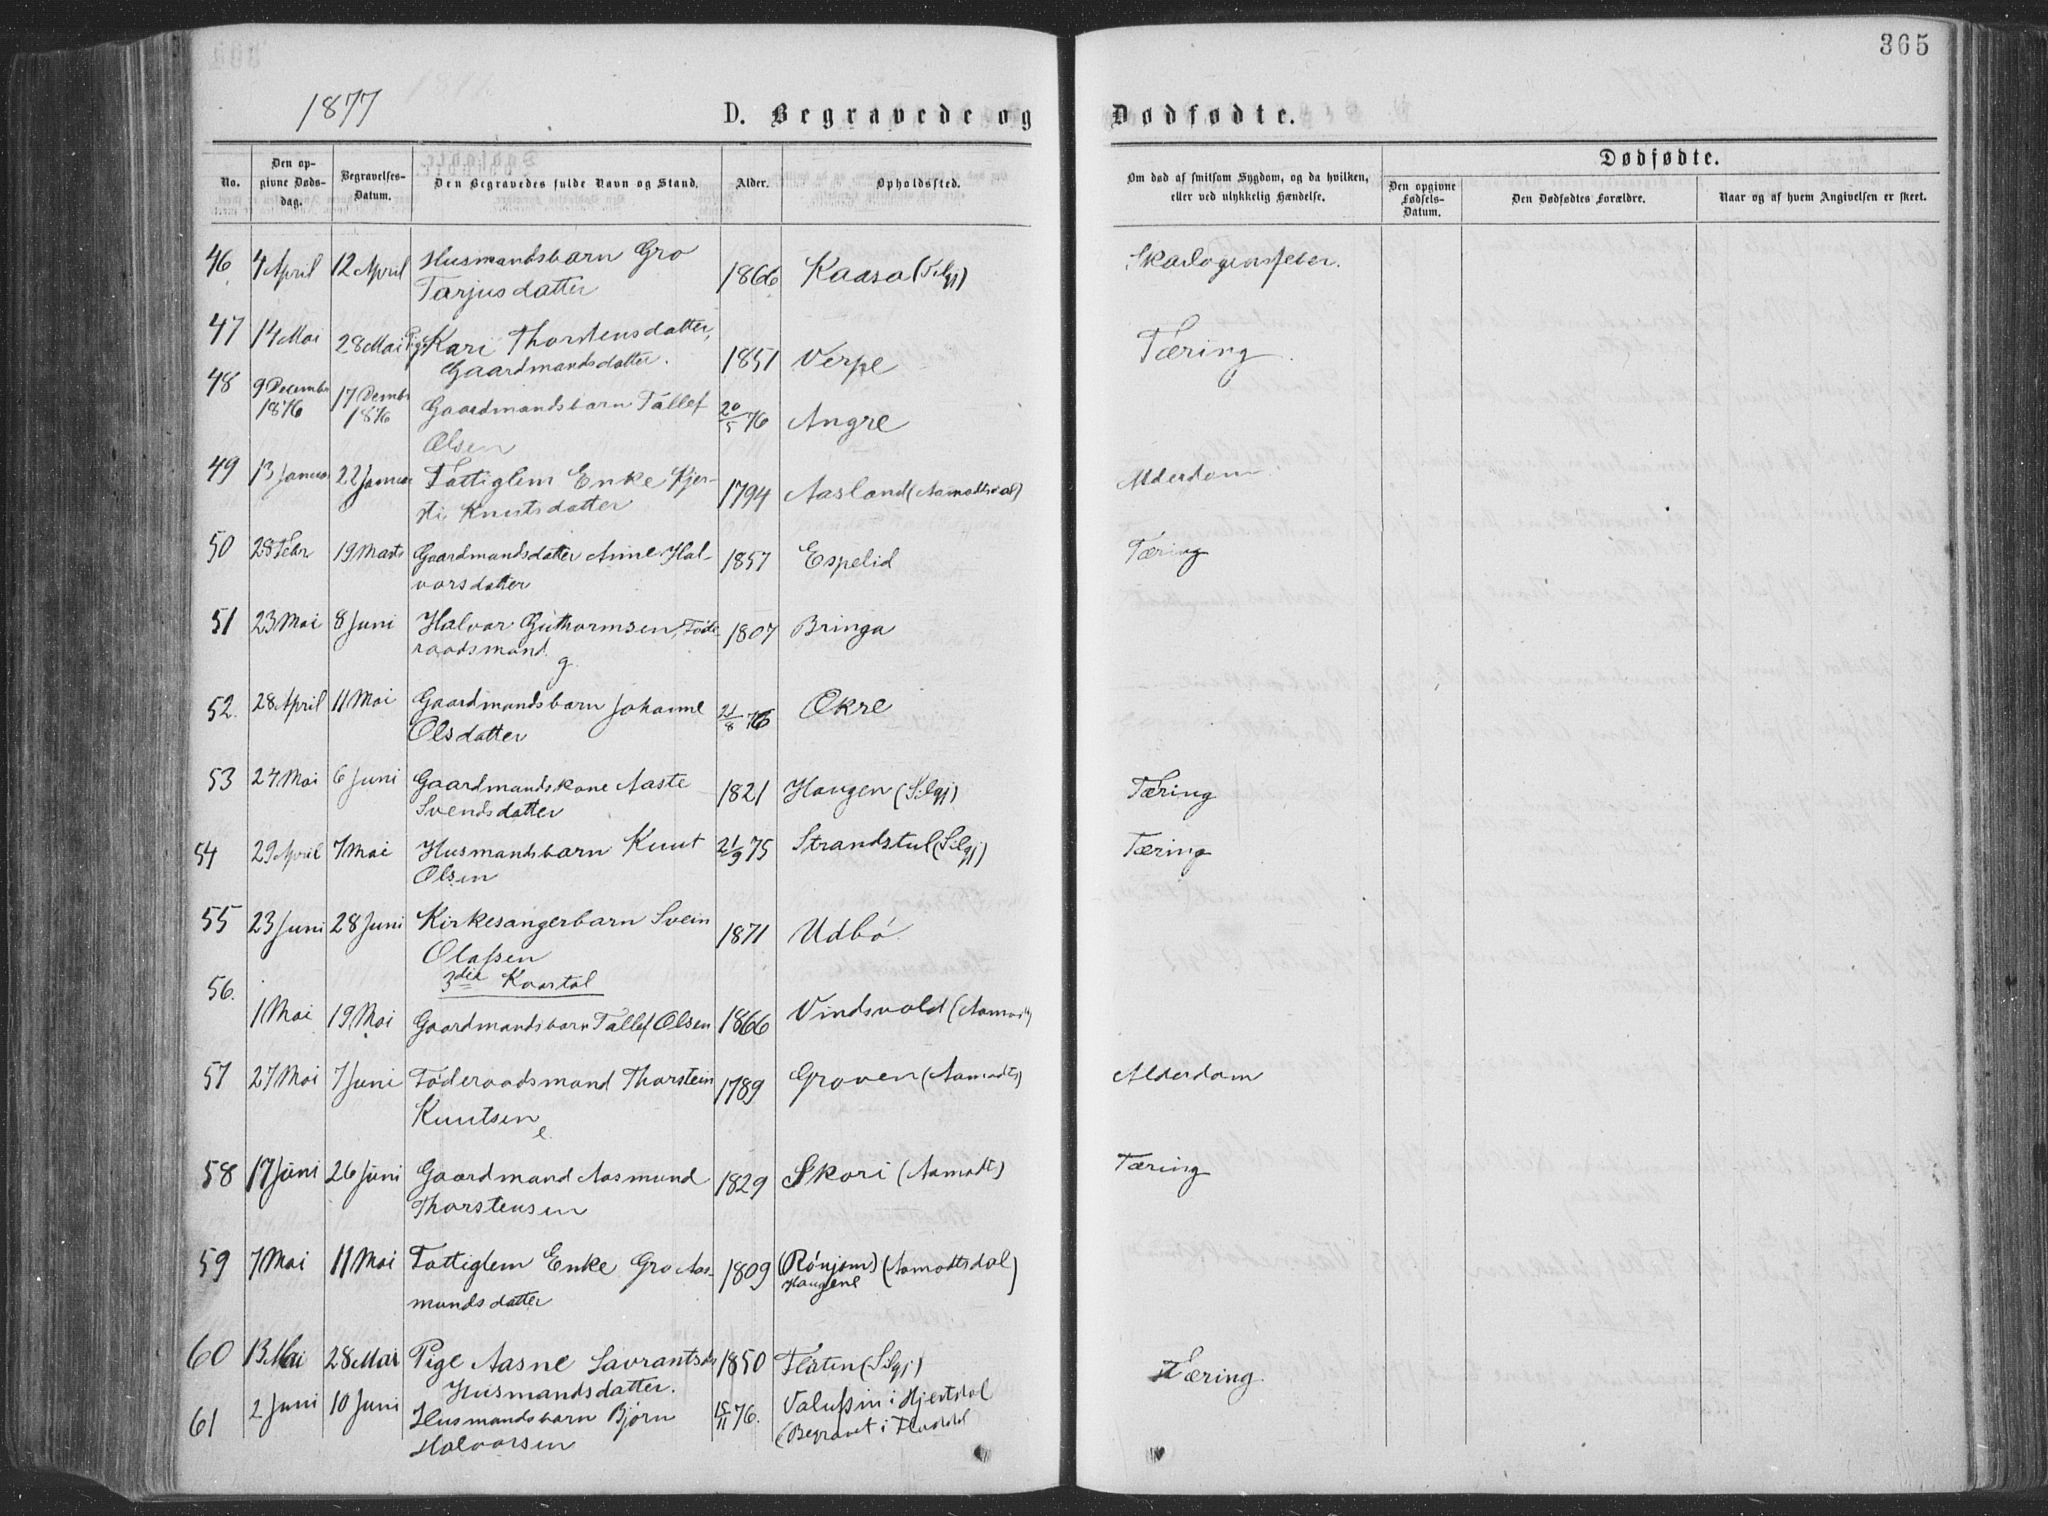 365
1877
D. Begravede og Dødfødte.
No.
Den opgivne Dødsdag.
Begravelses-Datum.
Den Begravedes fulde Navn og Stand.
Alder.
Opholdssted.
Om død af smitsom Sygdom, og da hvilken, eller ved ulykkelig Hændelse.
Dødfødte.
Den opgivne Fødsels-Datum.
Den Dødfødtes Forældre.
Naar og af hvem Angivelsen er skeet.
46 4 April 12 April Husmandsbarn Gro 1866 Kaasa (Silgj) Skarlagensfeber.
Tarjusdatter
47 14 Mai 28 Mai Pige Kari Thorstensdatter, 1851 Verpe Tæring
Gaardmandsdatter.
48 9 Decembr 1876 17 Dembr 1876 Gaardmandsbarn Tallef 20/5 76 Angre
Olsen
49 13 Januar 22 Januar Fattiglem Enke Kjer- 1794 Aasland (Aamodtsdal) Alderdom
sti Knutsdatter
50 28 Febr 19 Marts Gaardmandsdatter Anne Hal- 1857 Espelid Tæring
vorsdatter
51 23 Mai 8 Juni Halvor Guthormsen, Føde- 1807 Bringa
raadsmand g.
52. 28 April 11 Mai Gaardmandsbarn Johanne 21/8 76 Økre
Olsdatter
53 24 Mai 6 Juni Gaardmandskone Aaste 1821 Haugen (Silgj) Tæring
Svendsdatter
54 29 April 7 Mai Husmandsbarn Knut 21/9 75 Strandstul (Silgj) Tæring
Olsen
55 23 Juni 28 Juni Kirkesangerbarn Svein 1871 Udbö
Olafsen
3die Kvartal
56. 1 Mai 19 Mai Gaardmandsbarn Tallef Olsen 1866 Vindsvold (Aamodt)
57 27 Mai 7 Juni Föderaadsmand Thorstein 1789 Groven (Aamodts) Alderdom
Knutsen e.
58 17 Juni 26 Juni Gaardmand Aasmund 1829 Skori (Aamodt) Tæring
Thorstensen
59 7 Mai 11 Mai Fattiglem Enke Gro Aas- 1809 (Rönjom) (Aamodtsdal)
mundsdatter Haugene
60 13 Mai 28 Mai Pige Aasne Lavrantsdr 1850 Flaten (Silgj) Tæring.
Husmandsdatter.
61 2 Juni 10 Juni Husmandsbarn Bjørn 15/11 76. i Hjertdal
Halvorsen (Begravet i